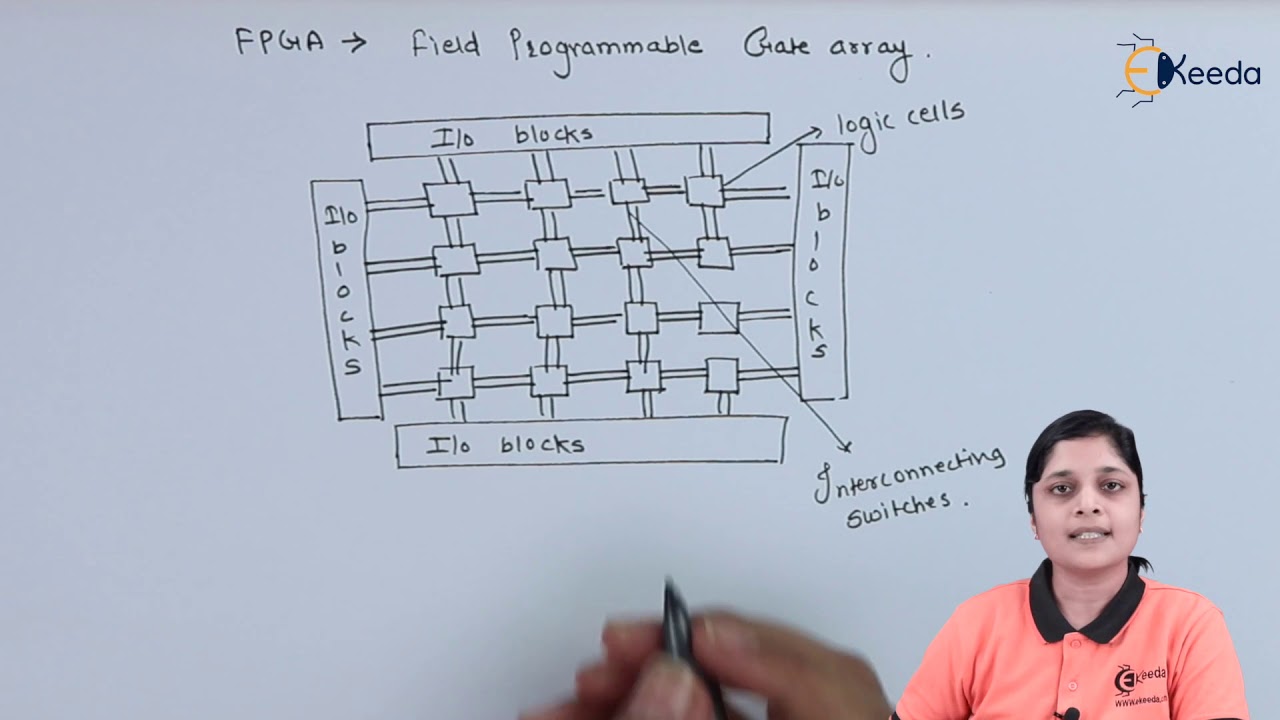 FPGA → Field Programmable Gate array.
EKeeda
logic cells
I/o blocks
I/o blocks
I/o blocks
I/o blocks
Interconnecting
switches.
EKeeda
www.ekeeda.com